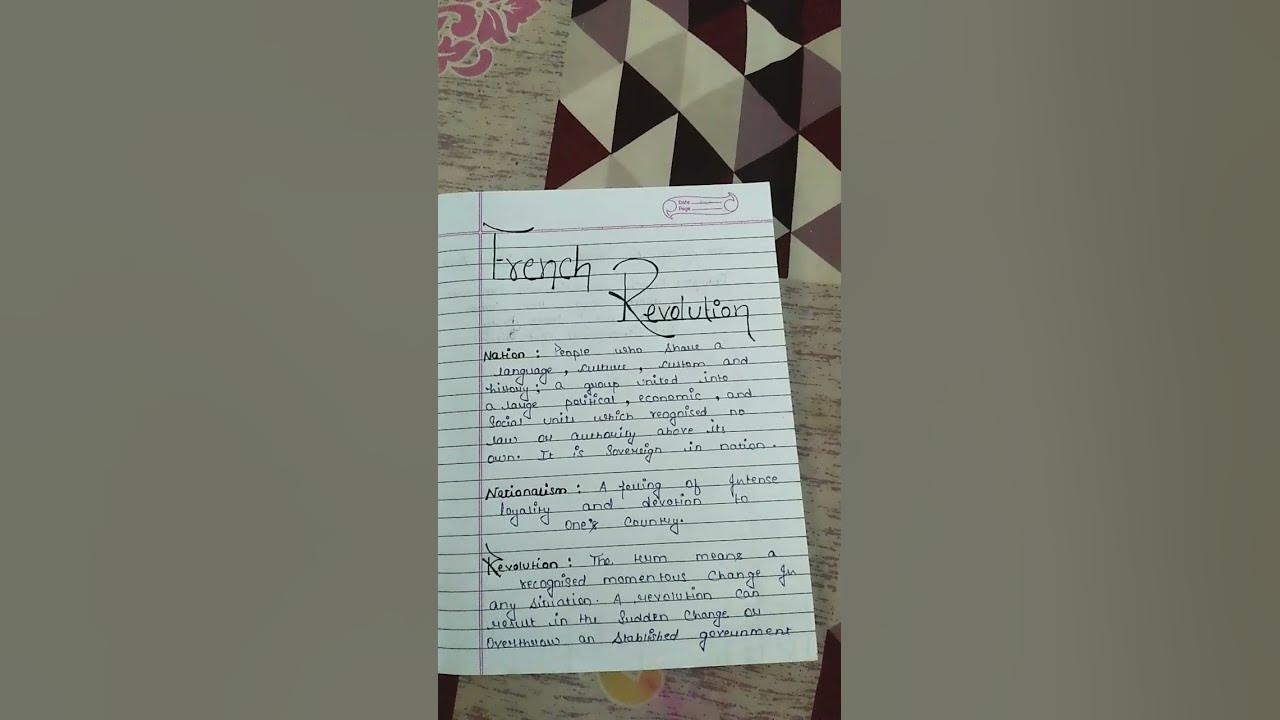 Date
Page
French
Revolution
Nation : People who share a
language, culture, custom and
history; a group united into
a large political, economic, and
Social units which reognised no
law or authority above its
own. It is Sovereign in nation.
Nationalism : A felling of Intense
loyality and devotion to
one's Country.
Revolution : The term means a
recognised momentous change In
any situation. A revolution can
result in the Sudden change or
Overthrow an stablished government